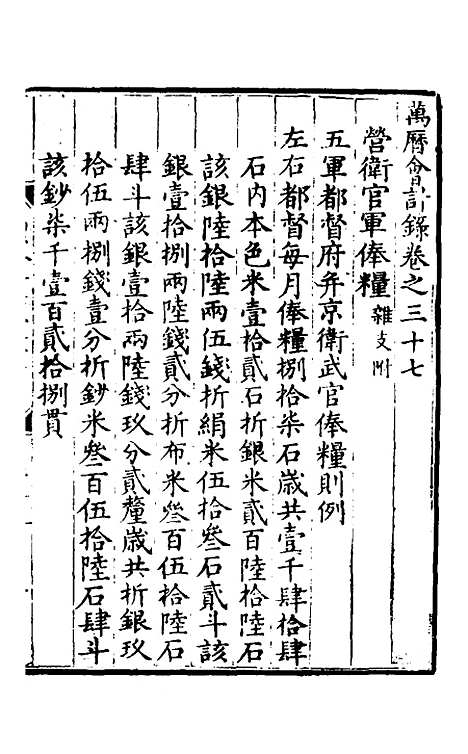 萬曆會計錄卷之三十七
營衛官軍俸糧 雜支附
五軍都督府并京衛武官俸糧則例
左右都督每月俸糧捌拾柒石歲共壹千肆拾肆
石內本色米壹拾貳石折銀米貳百陸拾陸石
該銀陸拾陸兩伍錢折絹米伍拾叄石貳斗該
銀壹拾捌兩陸錢貳分折布米叄百伍拾陸石
肆斗該銀壹拾兩陸錢玖分貳釐歲共折銀玖
拾伍兩捌錢壹分折鈔米叄百伍拾陸石肆斗
該鈔柒千壹百貳拾捌貫